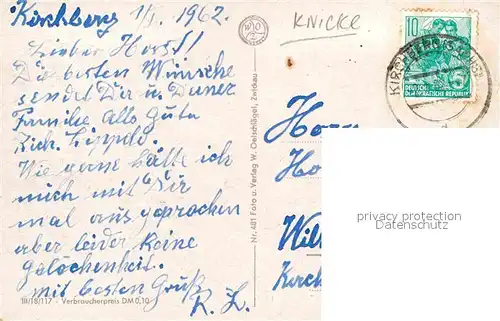 Kirchberg 1/I. 1962.
Lieber Horst!
Die besten Wünsche
sendet Dir u. Deiner
Familie Alles Gute
Rich. Lippold.
Wie gerne hätte ich
mich mit Dir
mal aus gesprochen
aber leider keine
Gelegenheit.
mit besten Gruß
R. L.
III/18/117 - Verbraucherpreis DM 0,10
Nr. 481 Foto u. Verlag W. Oelschlägel, Zwickau
KNICKE
10
DEUTSCHE
DEMOKRATISCHE REPUBLIK
KIRCHBERG
privacy protection
Datenschutz